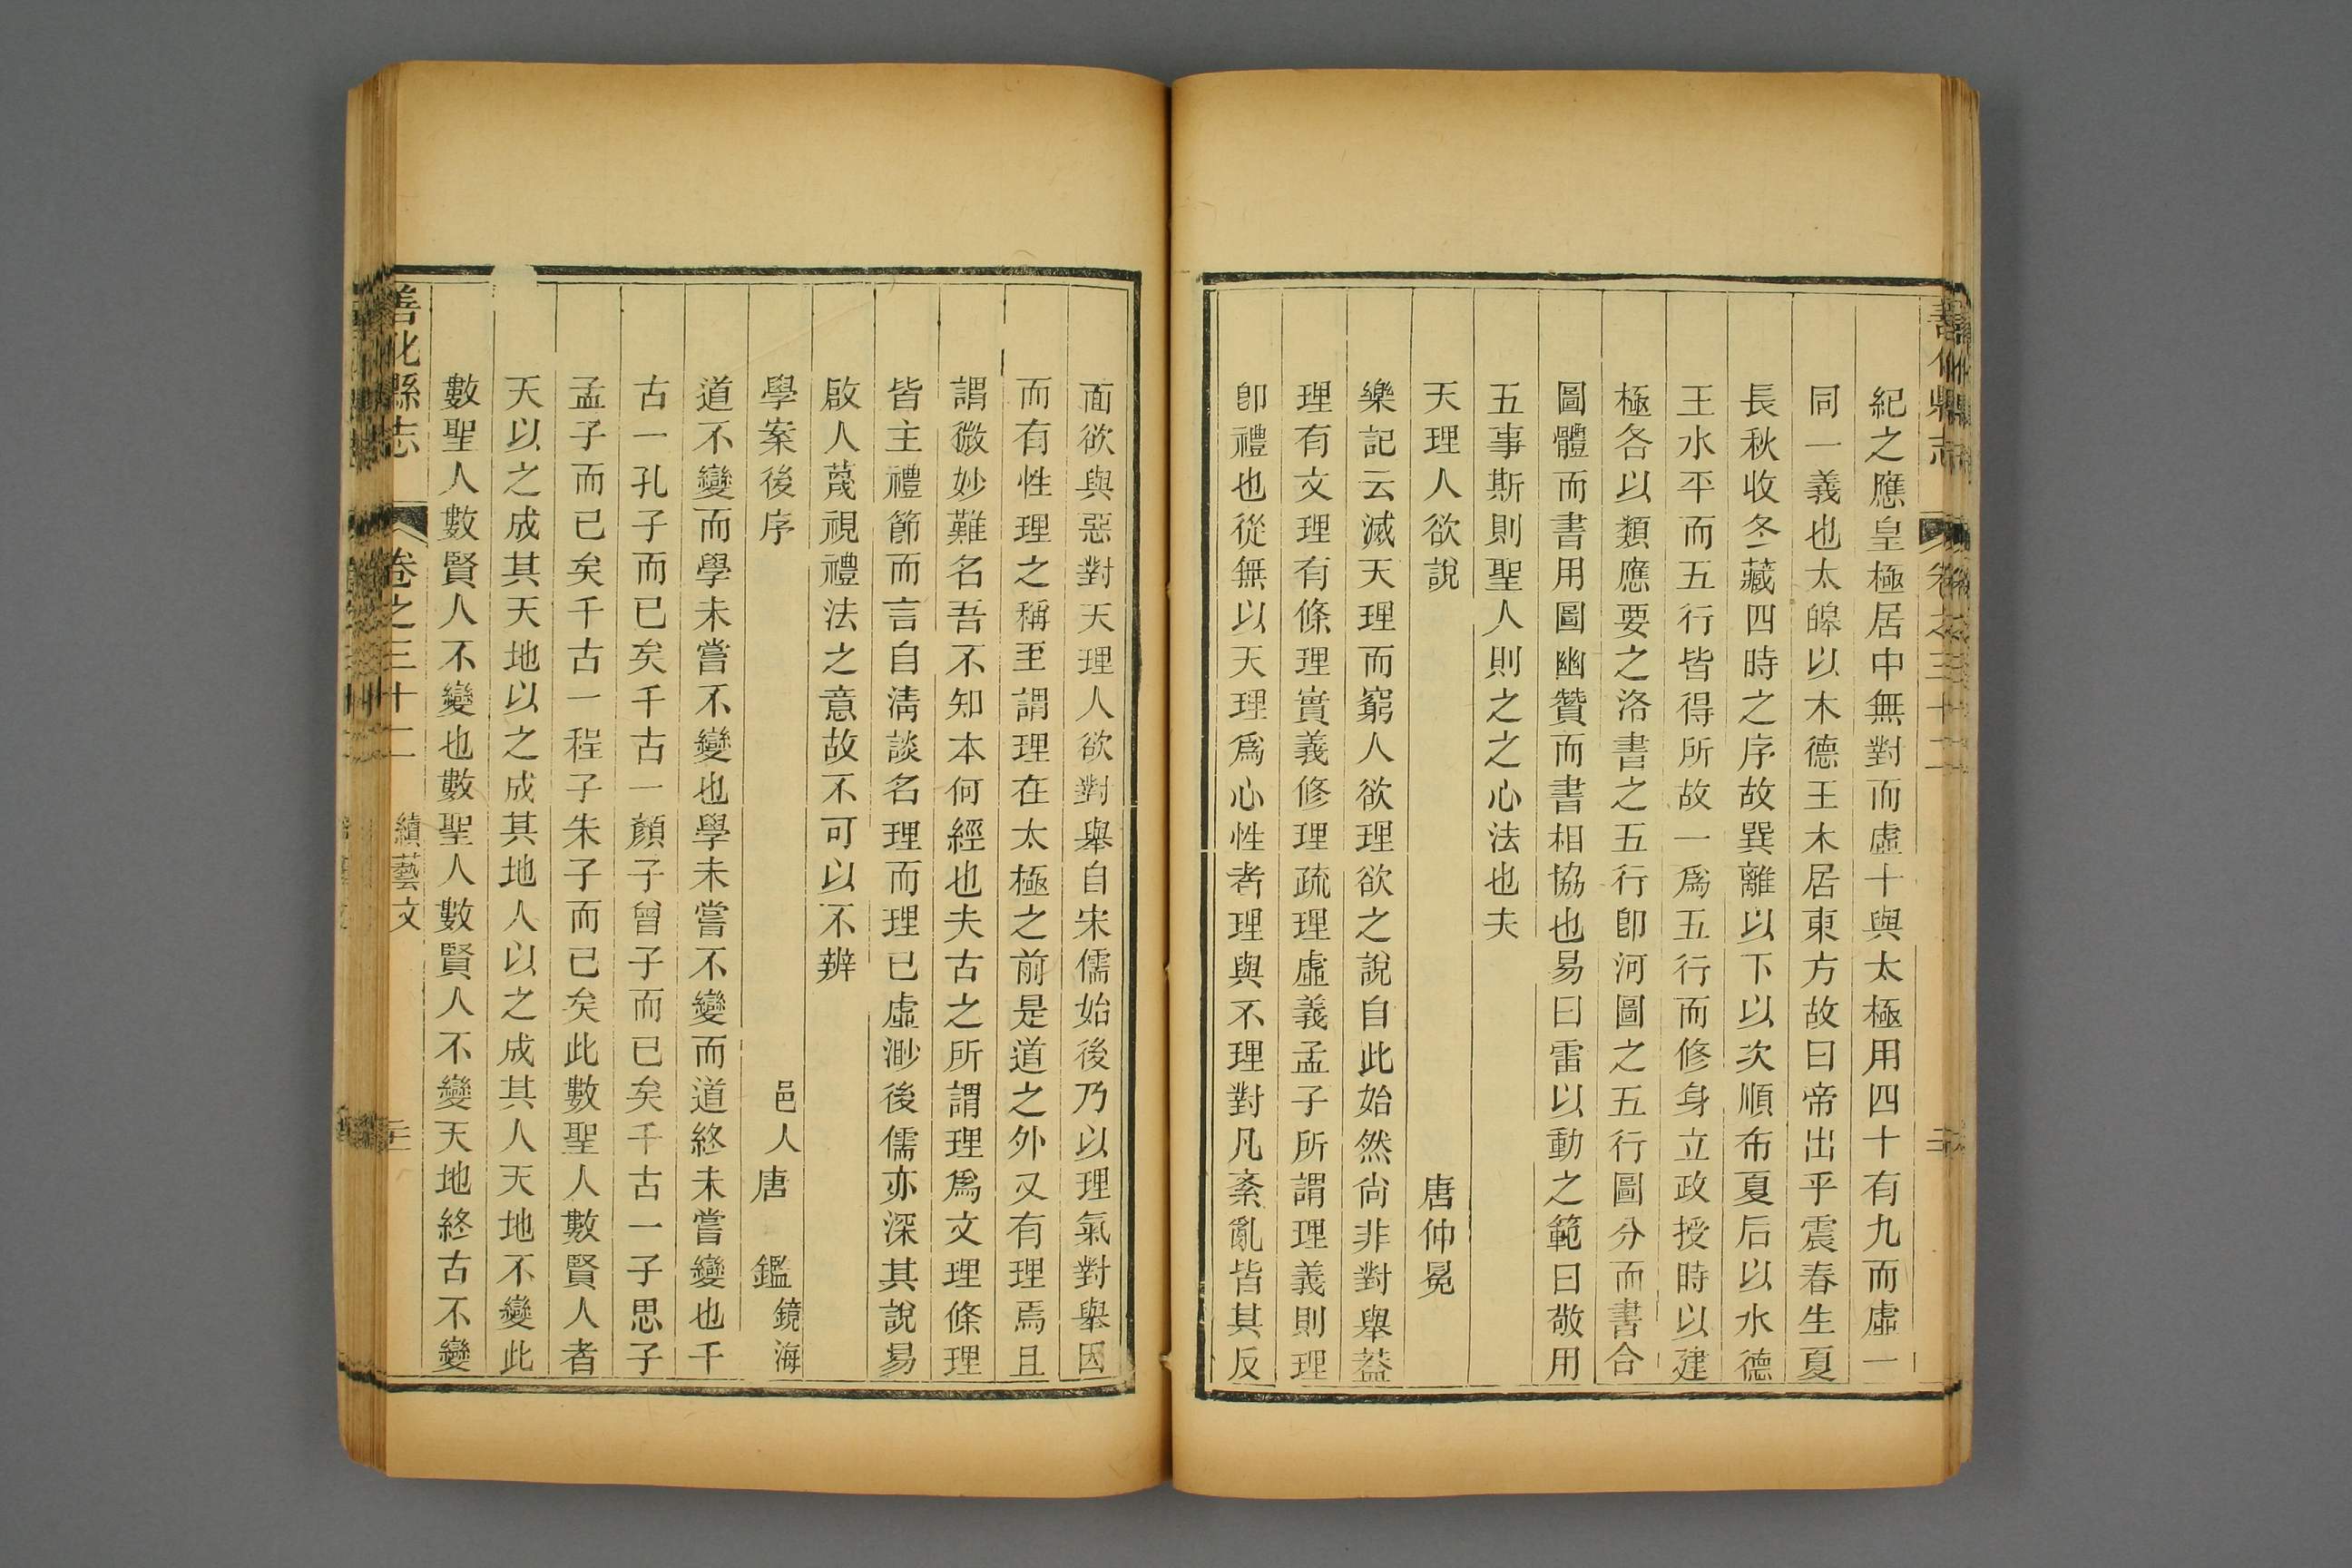 紀之應皇極居中無對而虛十與太極用四十有九而虛一
同一義也太皞以木德王木居東方故曰帝出乎震春生夏
長秋收冬藏四時之序故巽離以下以次順布夏后以水德
王水平而五行皆得所故一爲五行而修身立政授時以建
極各以類應要之洛書之五行卽河圖之五行圖分而書合
圖體而書用圖幽贊而書相協也易曰雷以動之範曰敬用
五事斯則聖人則之之心法也夫
天理人欲說 唐仲冕
樂記云滅天理而窮人欲理欲之說自此始然尙非對舉葢
理有文理有條理實義修理疏理虛義孟子所謂理義則理
卽禮也從無以天理爲心性者理與不理對凡紊亂皆其反
面欲與惡對天理人欲對舉自宋儒始後乃以理氣對舉因
而有性理之稱至謂理在太極之前是道之外又有理焉且
謂微妙難名吾不知本何經也夫古之所謂理爲文理條理
皆主禮節而言自淸談名理而理已虛渺後儒亦深其說易
啟人蔑視禮法之意故不可以不辨
學案後序 邑人唐 鑑鏡海
道不變而學未嘗不變也學未嘗不變而道終未嘗變也千
古一孔子而已矣千古一顏子曾子而已矣千古一子思子
孟子而已矣千古一程子朱子而已矣此數聖人數賢人者
天以之成其天地以之成其地人以之成其人天地不變此
數聖人數賢人不變也數聖人數賢人不變天地終古不變
善化縣志 卷之三十二 續藝文